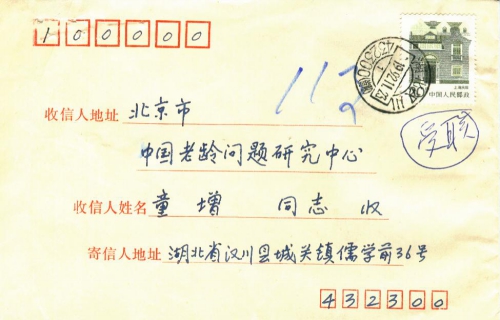 100000
收信人地址 北京市
中国老龄问题研究中心
收信人姓名 童增 同志 收
寄信人地址 湖北省汉川县城关镇儒学前36号
432300
中国人民邮政
11/2
受联